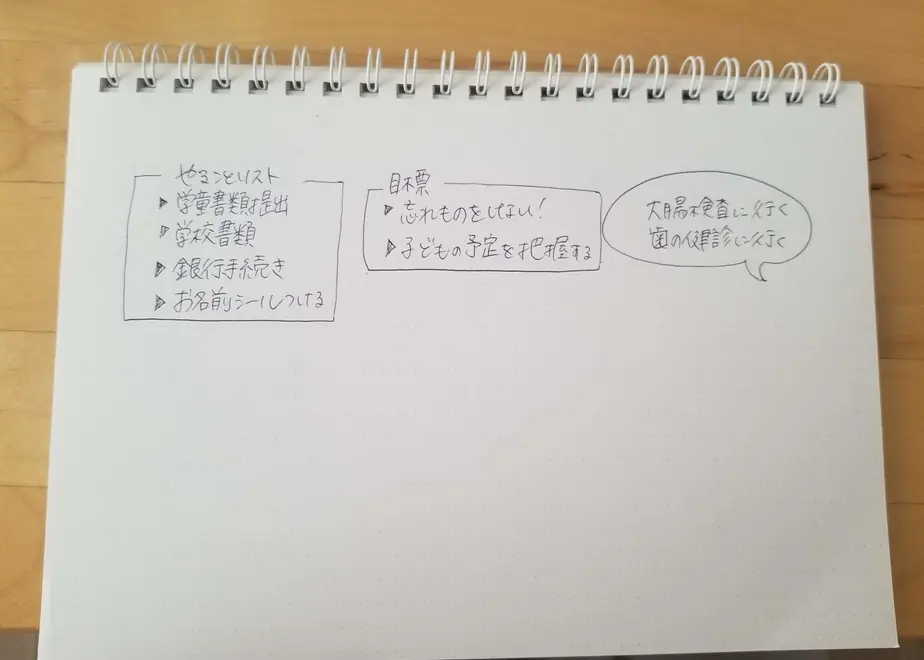 やることリスト
▶学童書類提出
▶学校書類
▶銀行手続き
▶お名前シールつける
目標
▶忘れものをしない！
▶子どもの予定を把握する
大腸検査に行く
歯の健診に行く